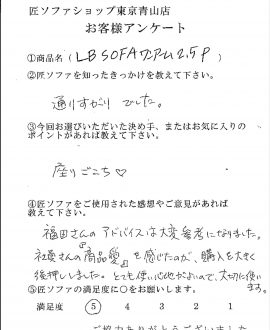 匠ソファショップ東京青山店
お客様アンケート
①商品名 ( LB SOFA ワイアーム 2.5P )
②匠ソファを知ったきっかけを教えて下さい。
通りすがりでした。
③今回お選びいただいた決め手、またはお気に入りの
ポイントがあれば教えて下さい。
座りごこち♡
④匠ソファをご使用された感想やご意見があれば
教えて下さい。
福田さんのアドバイスは大変参考になりました。
社員さんの『商品愛』を感じたのが、購入を大きく
後押ししました。とても使い心地がよいので、大切に使い
ます。
⑤匠ソファの満足度に○をお願いします。
満足度 ⑤ 4 3 2 1
ご協力ありがとうございました